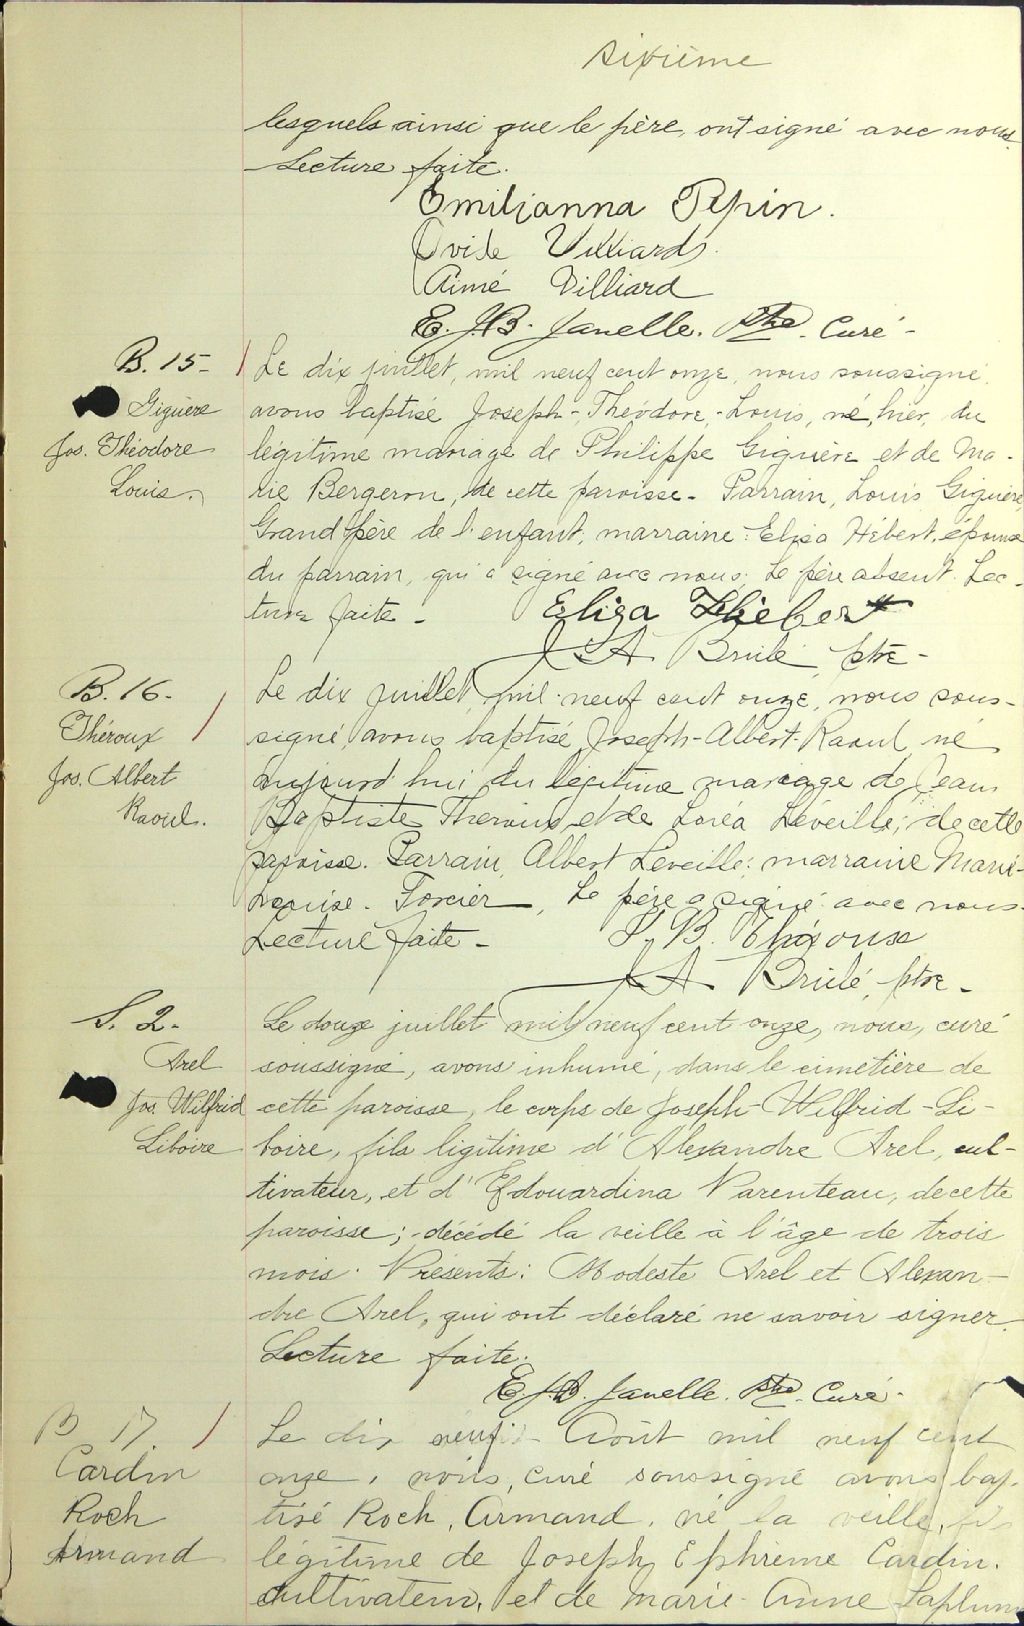 Sixième
lesquels ainsi que le père, ont signé avec nous.
Lecture faite.
Emilianna Pepin.
Ovide Villiard
Aimé Villiard
E. J. B. Janelle. Ptre. Curé -
B. 15 -
Giguère
Jos. Théodore
Louis.
Le dix juillet, mil neuf cent onze, nous soussigné,
avons baptisé Joseph-Théodore-Louis, né, hier, du
légitime mariage de Philippe Giguère et de Ma-
rie Bergeron, de cette paroisse. Parrain, Louis Giguère,
Grand'père de l'enfant, marraine: Eliza Hébert, épouse
du parrain, qui a signé avec nous; Le père absent. Lec-
ture faite - Eliza Hebert
J A Brulé, ptre -
B. 16 -
Théroux
Jos. Albert
Raoul.
Le dix juillet, mil neuf cent onze, nous sous-
signé, avons baptisé Joseph-Albert-Raoul, né
aujourd'hui du légitime mariage de Jean
Baptiste Theroux et de Loréa Léveillé; de cette
paroisse. Parrain, Albert Léveillé; marraine Marie-
Louise. Forcier, Le père a signé avec nous.
Lecture faite - J. B. Théroux
J A Brulé, ptre -
S. 2 -
Arel
Jos. Wilfrid
Liboire
Le douze juillet mil neuf cent onze, nous, curé
soussigné, avons inhumé, dans le cimetière de
cette paroisse, le corps de Joseph-Wilfrid-Li-
boire, fils légitime d'Alexandre Arel, cul-
tivateur, et d'Edouardina Parenteau, de cette
paroisse; décédé la veille à l'âge de trois
mois. Présents: Modeste Arel et Alexan-
dre Arel, qui ont déclaré ne savoir signer.
Lecture faite.
E. J. B. Janelle. Ptre. Curé -
B 17.
Cardin
Roch
Armand
Le dix neuf Août mil neuf cent
onze, nous, curé soussigné avons bap-
tisé Roch, Armand, né la veille, fils
légitime de Joseph Ephrème Cardin.
cultivateur, et de Marie-Anne